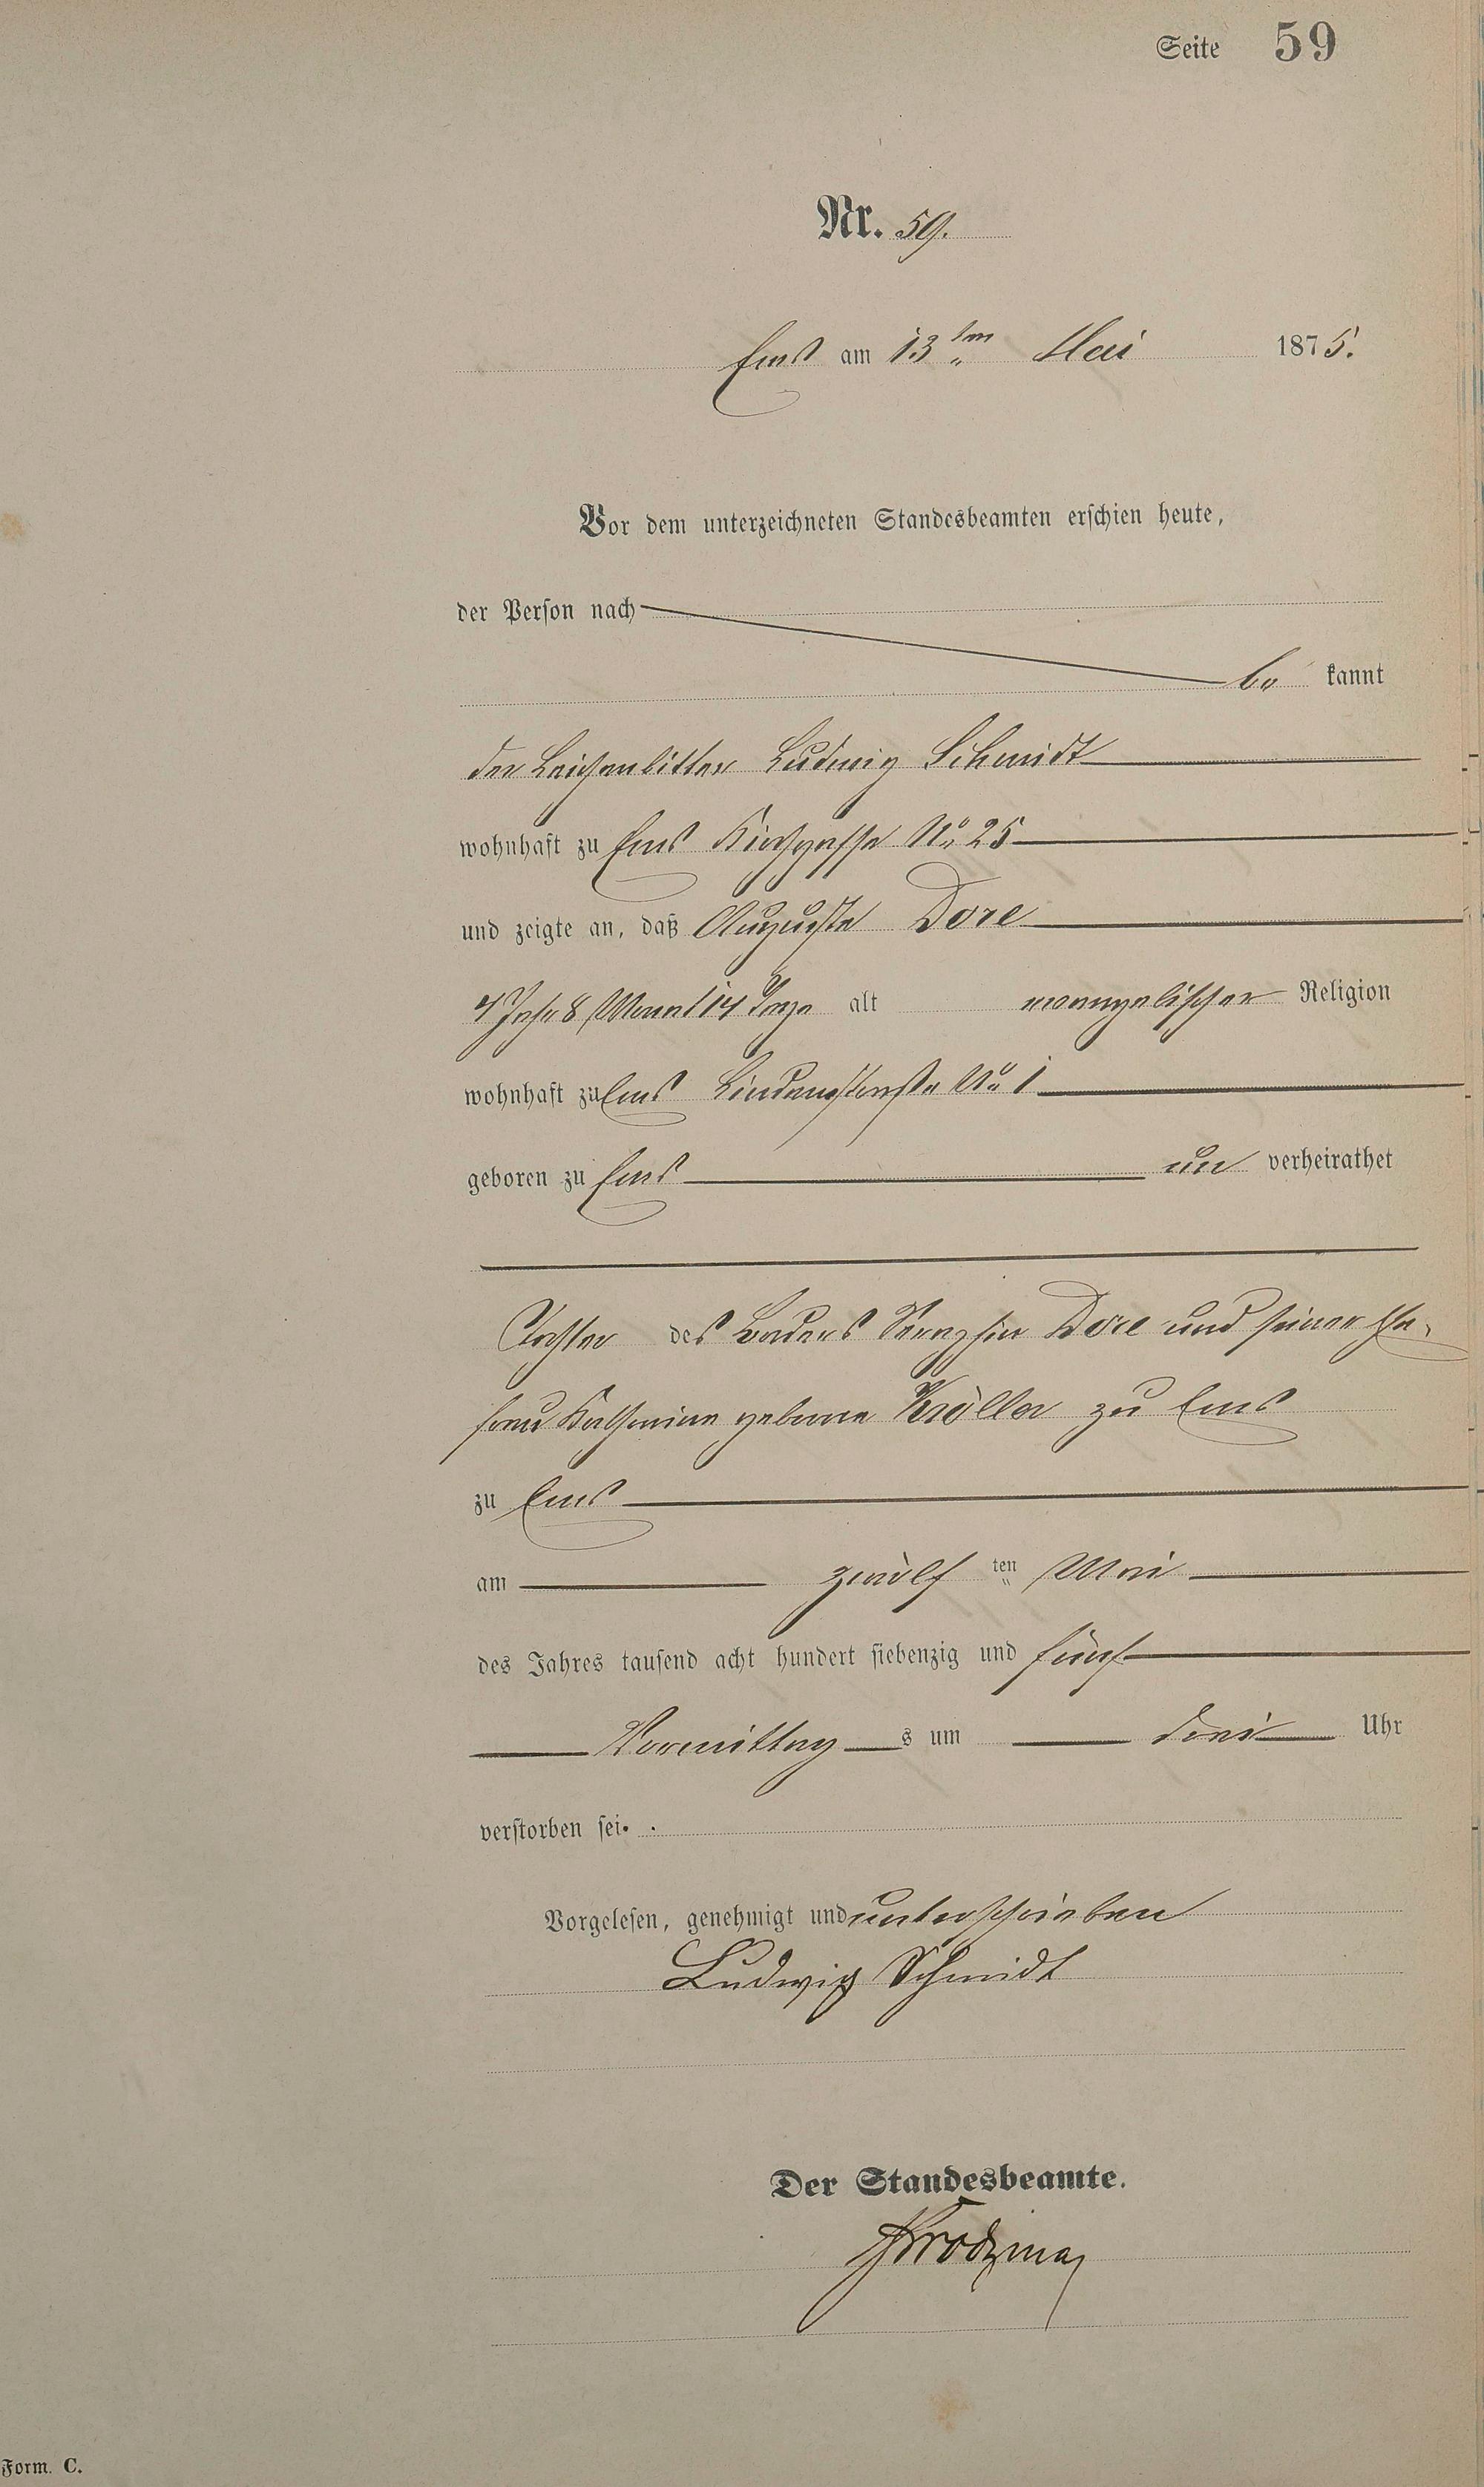 Seite 59
Nr. 59.
Ems am 13ten Mai 1875.
Vor dem unterzeichneten Standesbeamten erschien heute,
der Person nach
be kannt
der Leichenbitter Ludwig Schmidt
wohnhaft zu Ems Kirchgasse No 25
und zeigte an, daß Auguste Dore
4 Jahr 8 Monat 14 Tage alt evangelischer Religion
wohnhaft zu Ems Lindenstraße No 1
geboren zu Ems un verheirathet
Tochter des Baders Seraphin Dore und seiner Ehe-
frau Katharine geborne Kröller zu Ems
zu Ems
am zwölf ten Mai
des Jahres tausend acht hundert siebenzig und fünf
Vormittag s um drei Uhr
verstorben sei.
Vorgelesen, genehmigt und unterschrieben
Ludwig Schmidt
Der Standesbeamte.
Form. C.